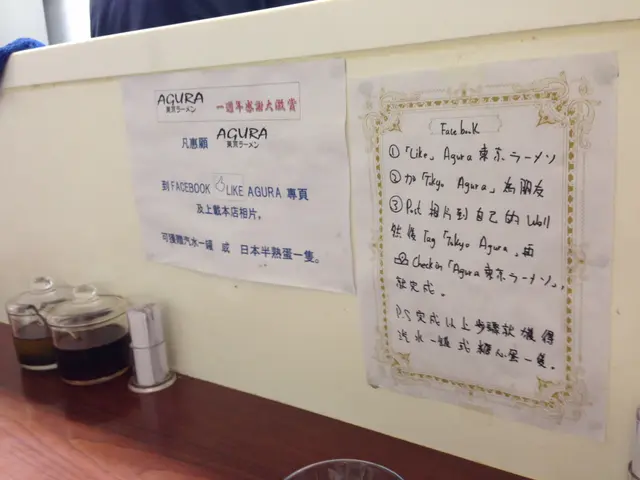 AGURA 一週年感謝大激賞
東京ラーメン
凡惠顧 AGURA
東京ラーメン
到 FACEBOOK LIKE AGURA 專頁
及上載本店相片。
可獲贈汽水一罐 或 日本半熟蛋一隻。
Facebook
① 「Like」 Agura 東京ラーメン
② 加「Tokyo Agura」為朋友
③ Post 相片到自己的 Wall
然後 Tag「Tokyo Agura」再
Check in 「Agura 東京ラーメン」,
就完成。
P.S 完成以上步驟就獲得
汽水一罐 或 糖心蛋一隻。